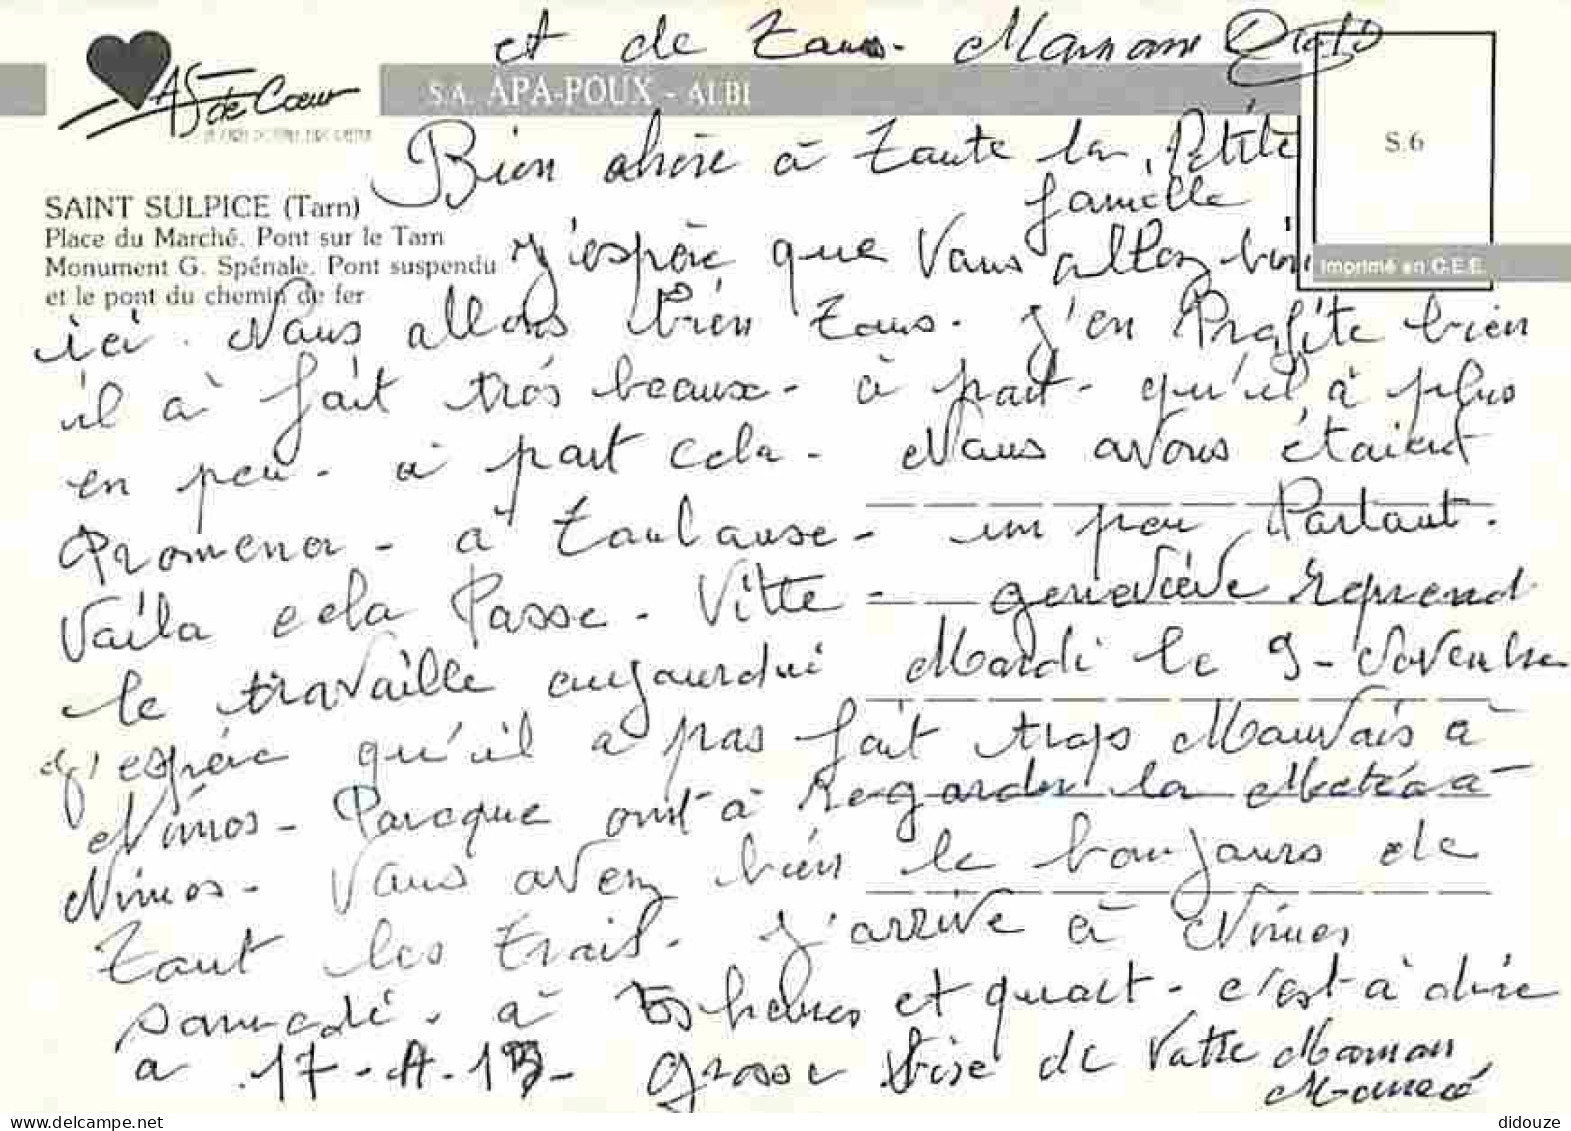 et de Taus. Maman
As de Cœur
S.A. APA-POUX - ALBI
S.6
Imprimé en C.E.E.
SAINT SULPICE (Tarn)
Place du Marché. Pont sur le Tarn
Monument G. Spénale. Pont suspendu
et le pont du chemin de fer
Bien chère à Taute la Petite
famille
J'espère que Vaus allez bien
ici. Naus allons bien Taus. J'en Profite bien
il à fait très beaux - à part - qu'il à plus
en peu - à part cela - Naus avons étaient
Promener - à Taulause - un peu Partaut.
Vaila cela Passe - Vitte - geneviève reprend
le travaille aujaurdui Mardi le 9 - Novembre
J'espère qu'il a pas fait trops Mauvais à
Nimes - Parcque ont à Regarder la Metéo à
Nimes - Vaus avez bien le banjaurs de
Taut les Trais. J'arrive à Nimes
samedi. à heures et quart - c'est à dire
a 17 - H - 15 - grosse bise de Vatre Maman